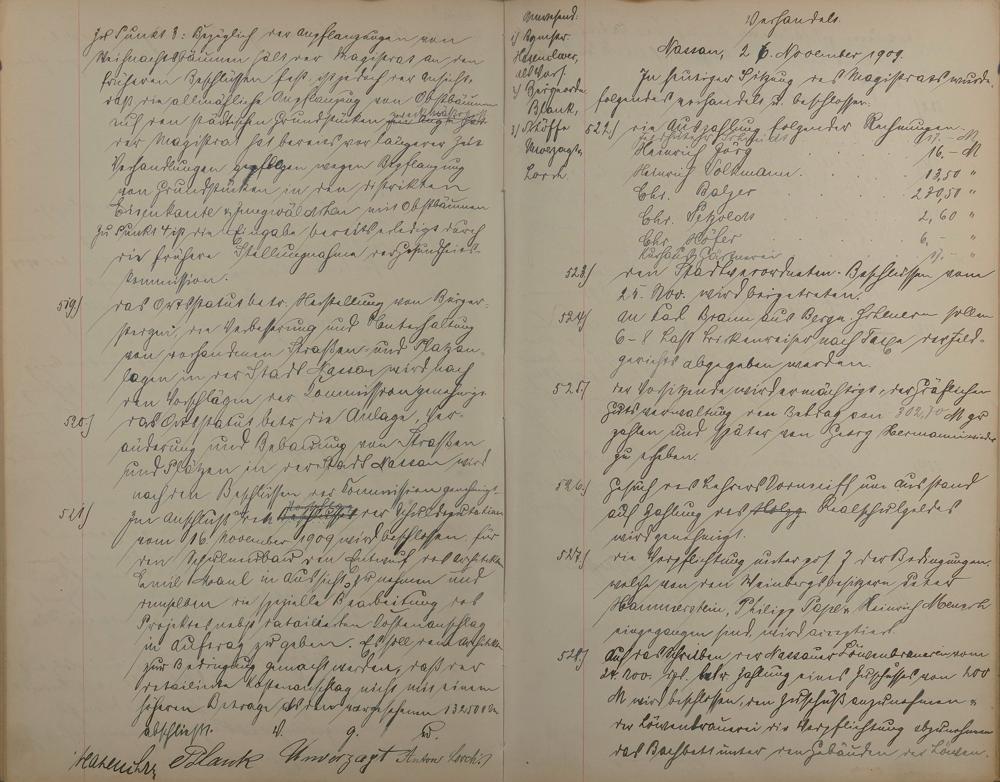 Zu Punkt 3: Bezüglich der Anpflanzungen von
Weihnachtsbäumen hält der Magistrat an den
früheren Beschlüssen fest, ist jedoch der Ansicht,
daß die allmähliche Anpflanzung von Obstbäumen
auf den städtischen Grundstücken
der Magistrat hat bereits vor längerer Zeit
Verhandlungen gepflogen wegen Bepflanzung
von Grundstücken in den Distrikten
mit Obstbäumen
Zu Punkt 4 ist die Eingabe bereits erledigt durch
die frühere Stellungnahme der Gesundheits-
kommission.
519) das Ortsstatut betr. Herstellung von Bürger-
steigen, die Verbesserung und Unterhaltung
von vorhandenen Straßen- und Platzan-
lagen in der Stadt Nassau wird nach
den Vorschlägen der Kommission genehmigt
520) das Ortsstatut betr. die Anlage, Ver-
änderung und Bebauung von Straßen
und Plätzen in der Stadt Nassau wird
nach den Beschlüssen der Kommission genehmigt.
521) Im Anschluß den der Schuldeputation
vom 16. November 1909 wird beschlossen, für
den Schulneubau den Entwurf des Architekten
Emil in Aussicht zu nehmen und
demselben die spezielle Bearbeitung des
Projektes nebst detaillierten Kostenanschlag
in Auftrag zu geben. Es soll dem Architekten
zur Bedingung gemacht werden, daß der
detaillierte Kostenanschlag nicht mit einem
höheren Betrage als den vorgesehenen
abschließt. V. g. u.
Hasenclever Blank Unverzagt Anton Lorch
Anwesend:
1) Bgmstr.
Hasenclever,
als Vors.
2) Beigeordn.
Blank,
3) Schöffe
Unverzagt
Lorch
Verhandelt
Nassau, 26. November 1909.
In heutiger Sitzung des Magistrats wurde
folgendes verhandelt u. beschlossen:
522) die Auszahlung folgender Rechnungen:
Heinrich Jörg 16.- M
Heinrich Volkmann. 13,50 "
Chr. Balzer 230,50 "
Chr. 2,60 "
Chr. Höfer 6,- "
523) den Stadtverordneten-Beschlüssen vom
25. Nov. wird beigetreten.
524) An Karl Braun aus Bergn. sollen
6-8 Last Birkenreiser nach Taxe der Feld-
gerichts abgegeben werden.
525) der Vorsitzende wird ermächtigt, der Gräflichen
Gutsverwaltung den Betrag von 302,70 M zu
zahlen und später von Georg Hermann wieder
zu erheben.
526) Gesuch des Lehrers um Ausstand
auf Zahlung des Realschulgeldes
wird genehmigt.
527) die Verpflichtung unter pos. 7 der Bedingungen,
welche von den Weinbergsbesitzern
Hammerstein, Philipp Heinrich
eingegangen sind, wird acceptiert.
528) Auf das Schreiben der Nassauer Löwenbrauerei vom
24. Nov. betr. Zahlung eines Zuschusses von 200
M wird beschlossen, den Zuschuß anzunehmen u.
der Löwenbrauerei die Verpflichtung abzunehmen
das Bachbett unter den Gebäuden des Löwen-